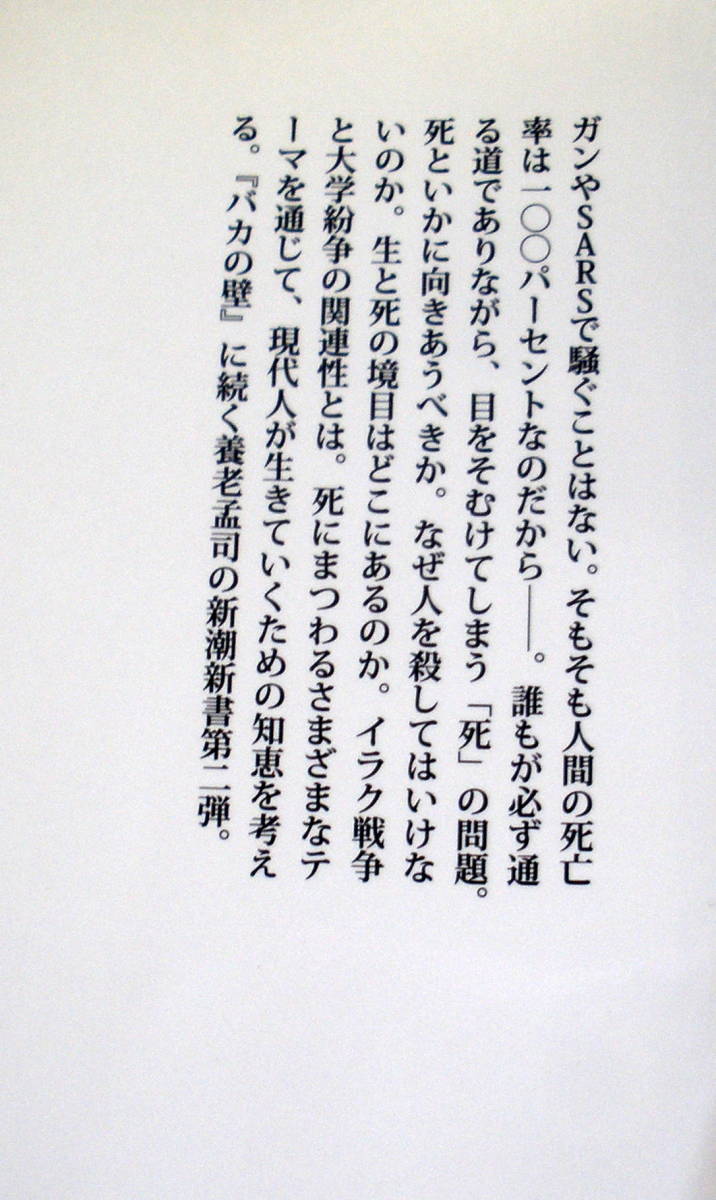 ガンやSARSで騒ぐことはない。そもそも人間の死亡
率は一〇〇パーセントなのだから――。誰もが必ず通
る道でありながら、目をそむけてしまう「死」の問題。
死といかに向きあうべきか。なぜ人を殺してはいけな
いのか。生と死の境目はどこにあるのか。イラク戦争
と大学紛争の関連性とは。死にまつわるさまざまなテ
ーマを通じて、現代人が生きていくための知恵を考え
る。『バカの壁』に続く養老孟司の新潮新書第二弾。